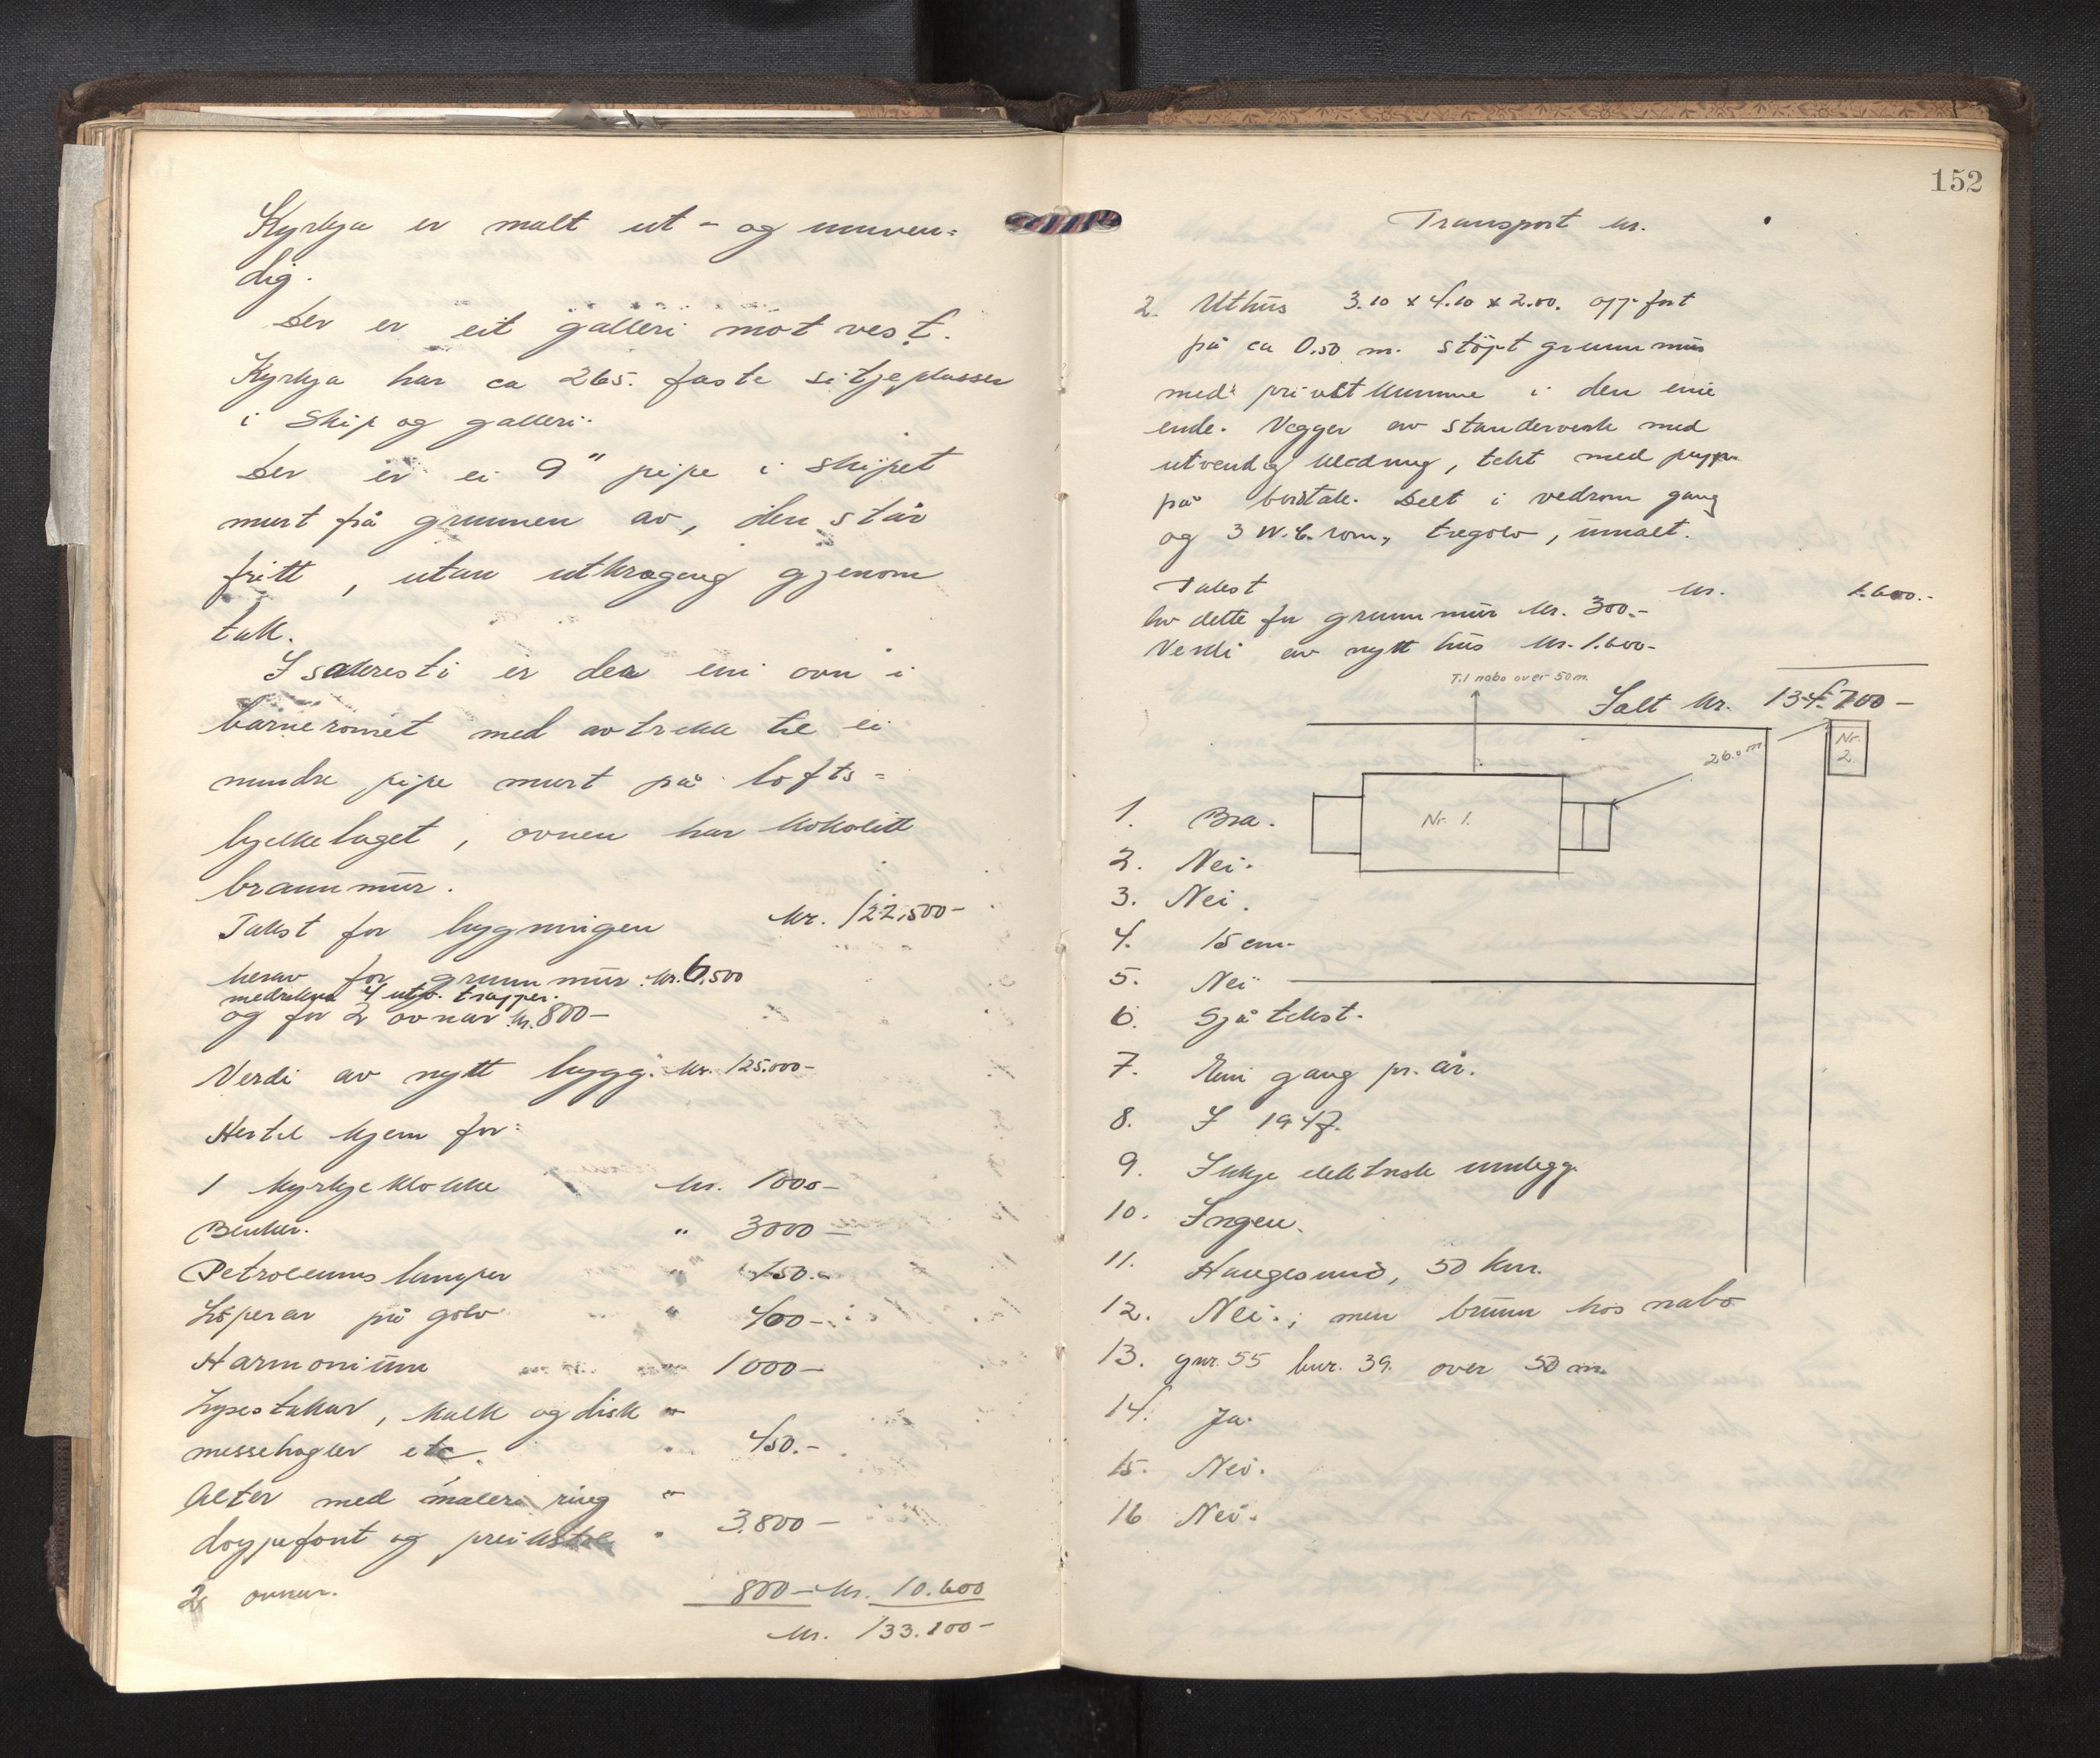 Kyrkja er malt ut- og innven=
dig.
Der er eit galleri mot vest.
Kyrkja har ca 265. faste sitjeplasser
i Skip og galleri.
Der er ei 9" pipe i skipet
murt frå grunnen av, den står
fritt, utan utkraging gjenom
tak.
I sakresti er der ein ovn i
barneromet med avtrekk til ei
mindre pipe murt på lofts=
bjelkelaget, ovnen har kokolitt
brannmur.
Takst for bygningen kr. 122,500-
herav for grunnmur kr. 6,500
medrekna 4 utv. trapper.
og for 2 ovnar kr. 800-
Verdi av nytt bygg: kr. 125.000-
Hertil kjem for:
1 kyrkjeklokke kr. 1000-
Benker. " 3000-
Petroleumslamper " 150.-
Löperar på golv " 400-
Harmonium 1000-
Lysestakar, kalk og disk "
messehagler etc. 450.-
Alter med måleri ring "
döypefont og preikstol 3.800-
2 ovnar. 800- kr. 10.600
kr. 133.100-
152
Transport kr.
2. Uthus 3.10 x 4.10 x 2.00. oppfört
på ca 0.50 m. stöpt grunnmur
med privetkumme i den eine
ende. Vegger av standerverk med
utvendig kledning, tekt med papp
på bordtak. Delt i vedrom gang
og 3 W.C. rom, tregolv, umalt.
Takst kr. 1.600.-
Av dette for grunnmur kr. 300.-
Verdi av nytt hus kr. 1.600-
Til nabo over 50 m.
Ialt kr. 134.700-
26.0 m
Nr. 2.
Nr. 1.
1. Bra.
2. Nei.
3. Nei.
4. 15 cm.
5. Nei
6. Sjå tekst.
7. Ein gang pr. år.
8. I 1947.
9. Ikkje elektrisk innlegg.
10. Ingen.
11. Haugesund, 50 km.
12. Nei.; men brunn hos nabo
13. gnr. 55 bnr. 39. over 50 m.
14. Ja.
15. Nei.
16 Nei.